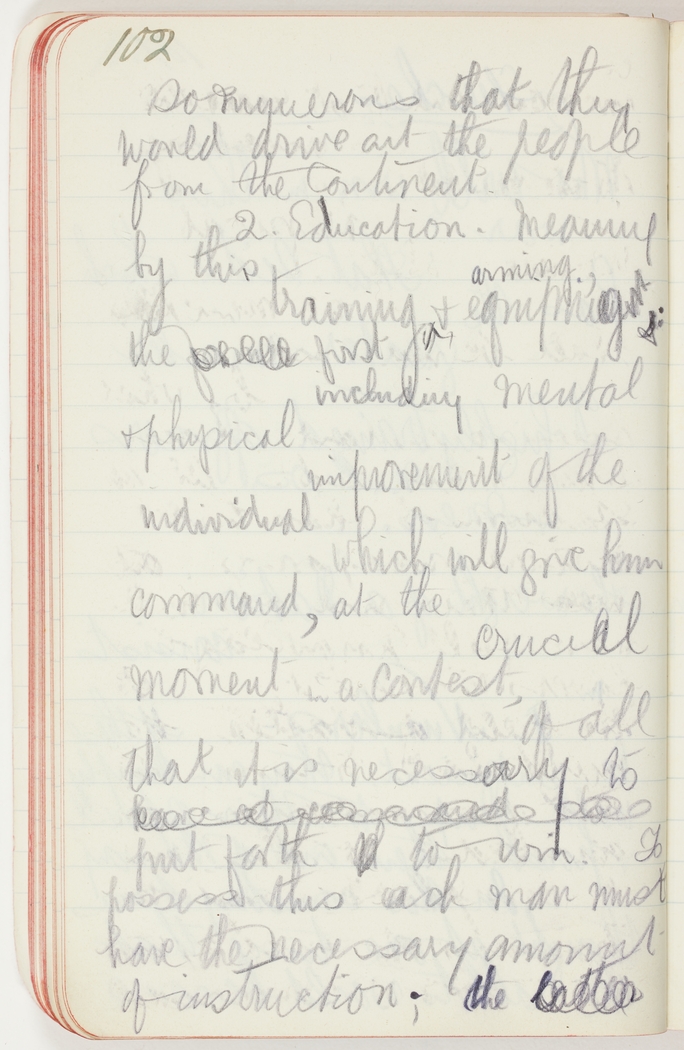 102
so numerous that they
would drive out the people
from the Continent.
2. Education. Meaning
by this
arming,
training & equiping
the first
including mental
+ physical
improvement of the
individual
which will give him
command, at the
crucial
moment in a Contest,
of all
that it is necessary to
put forth to win. To
possess this each man must
have the necessary amount
of instruction; the